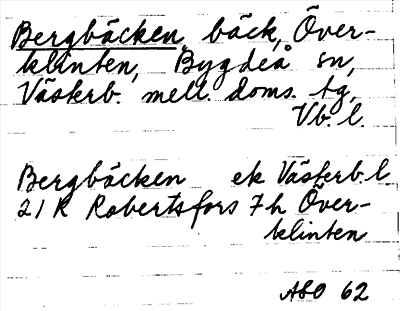 Bergbäcken, bäck, Över-
klinten, Bygdeå sn,
Västerb. mell. doms. tg,
Vb. l.
Bergbäcken ek Västerb. l
21 K Robertsfors 7 h Över-
klinten
ASO 62